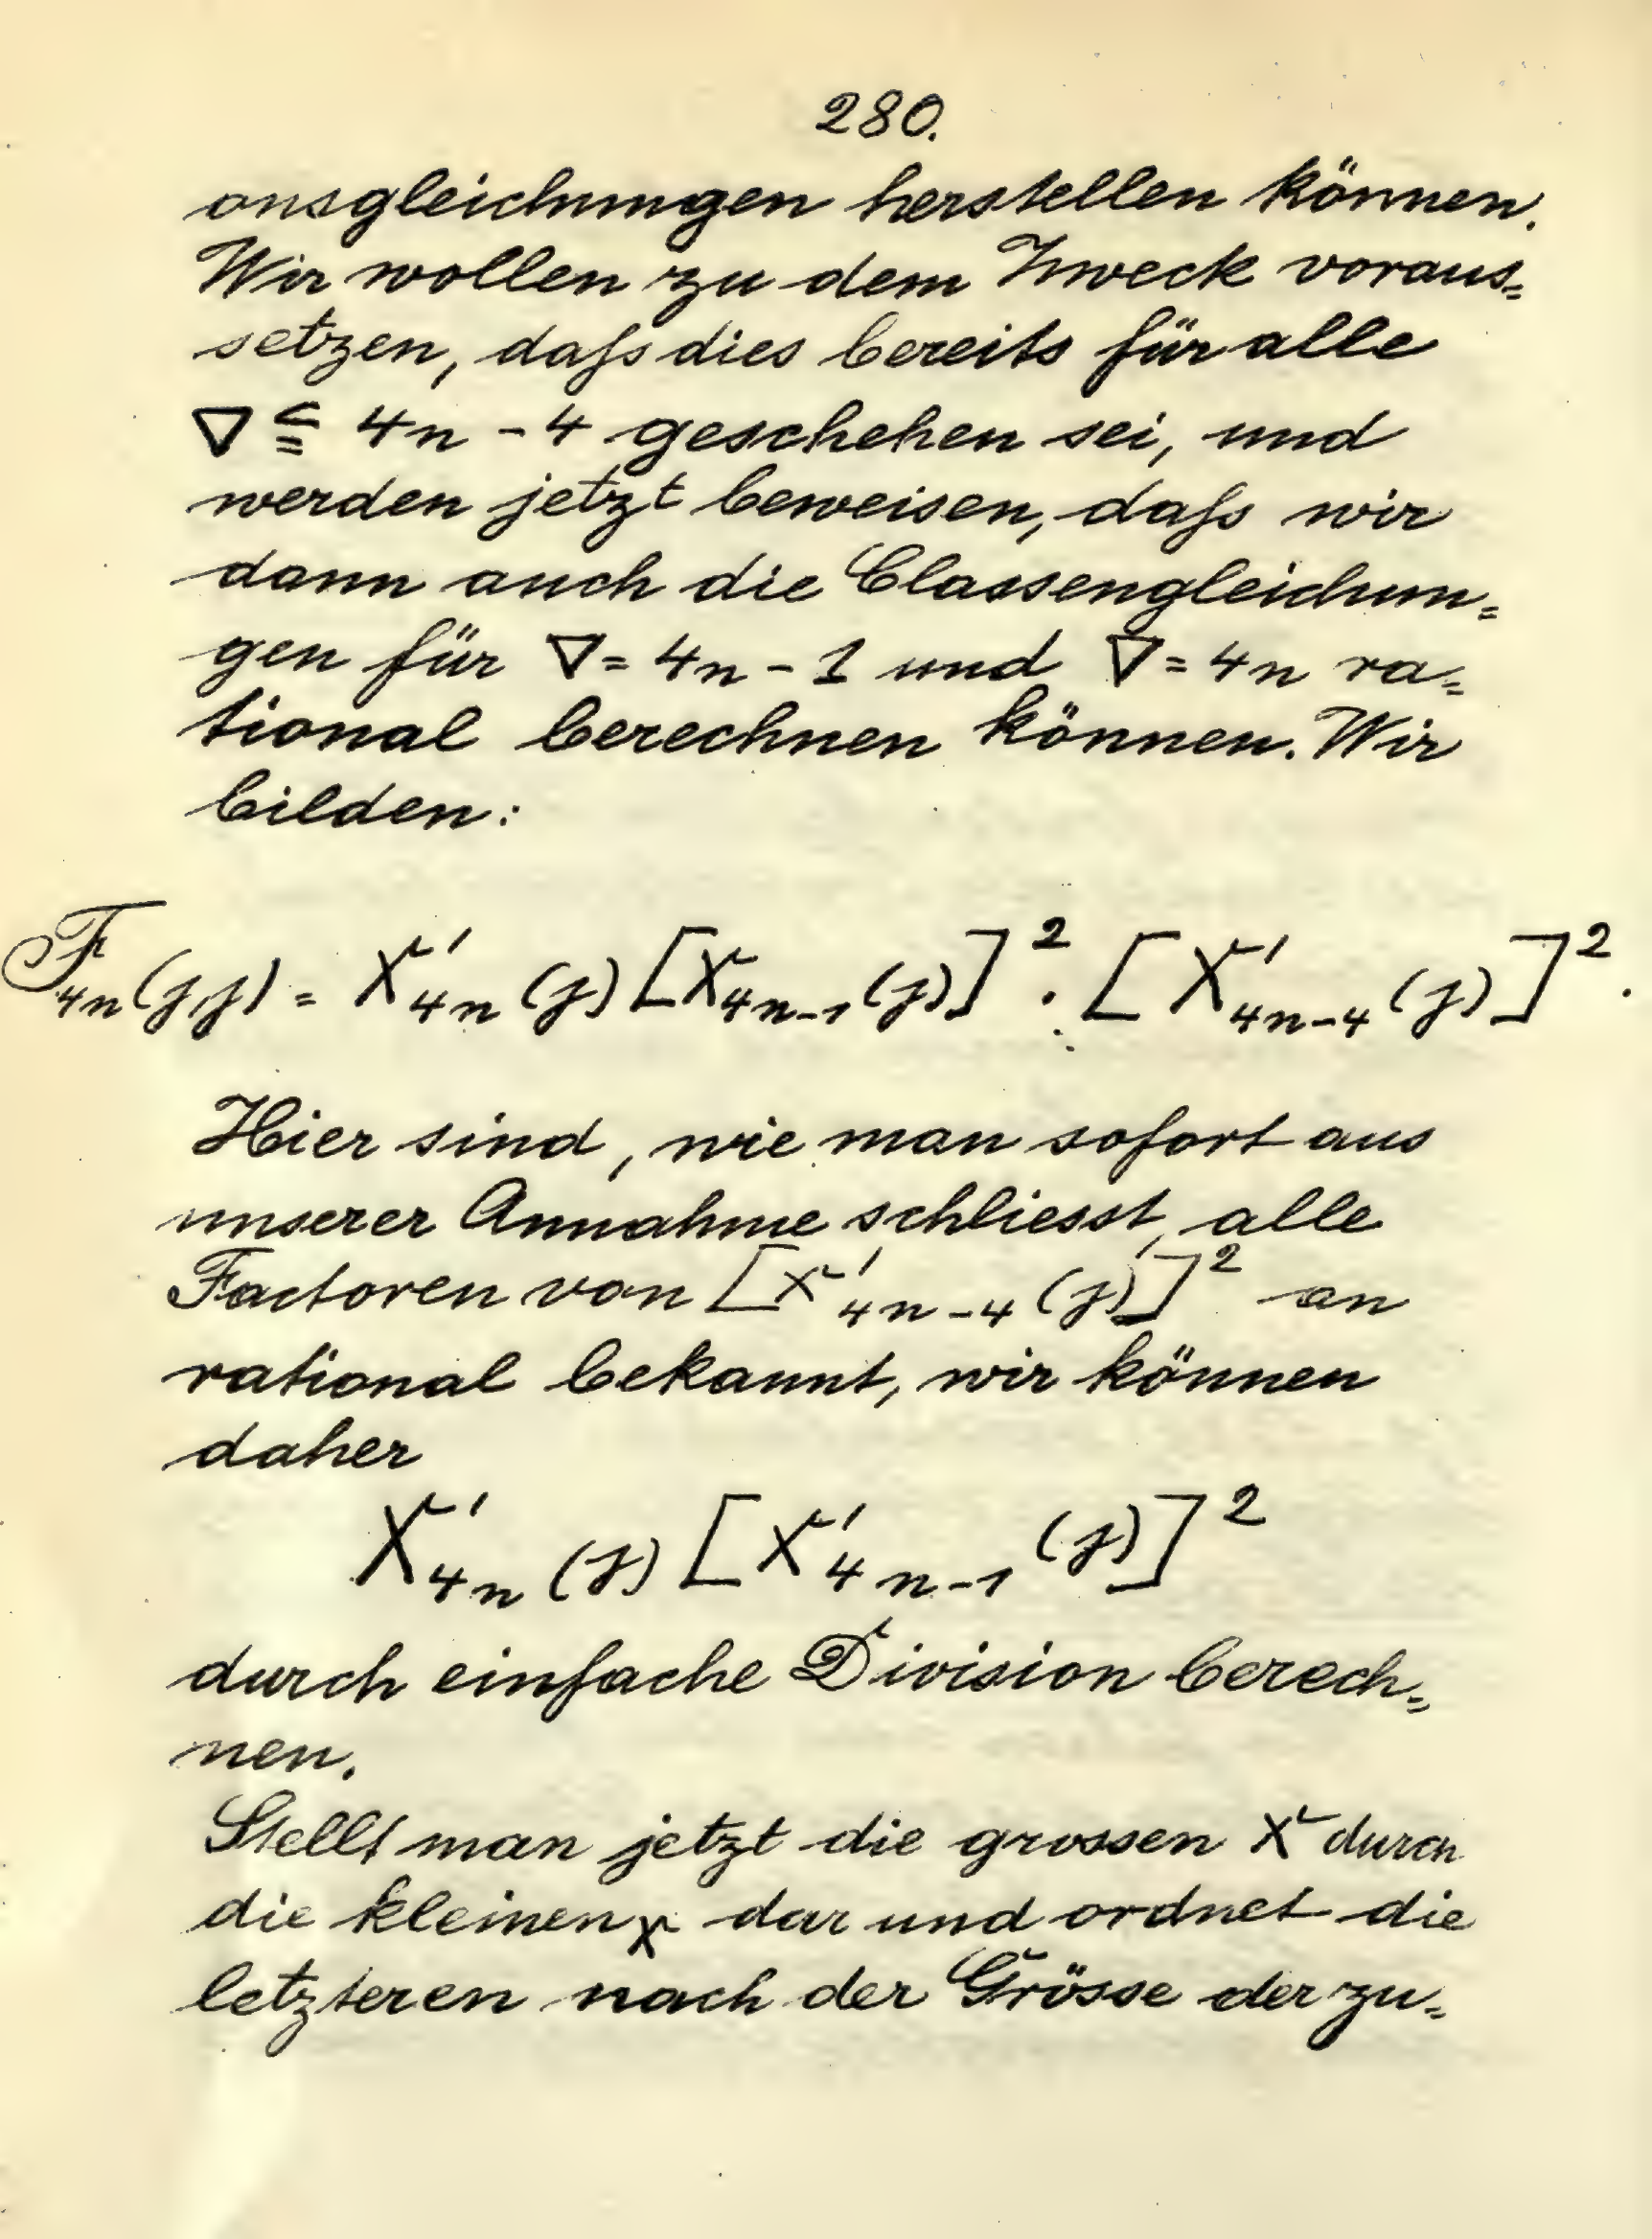 280.
onsgleichungen herstellen können.
Wir wollen zu dem Zweck voraus=
setzen, daſs dies bereits für alle
∇ ≦ 4n - 4 geschehen sei, und
werden jetzt beweisen, daſs wir
dann auch die Classengleichun=
gen für ∇ = 4n - 1 und ∇ = 4n ra=
tional berechnen können. Wir
bilden:
F₄ₙ(j,j) = X'₄ₙ(j) [X₄ₙ₋₁(j)]² · [X'₄ₙ₋₄(j)]² .
Hier sind, wie man sofort aus
unserer Annahme schliesst, alle
Factoren von [X'₄ₙ₋₄(j)]² an
rational bekannt, wir können
daher
X'₄ₙ(j) [X'₄ₙ₋₁(j)]²
durch einfache Division berech=
nen.
Stellt man jetzt die grossen X durch
die kleinen χ dar und ordnet die
letzteren nach der Grösse der zu=